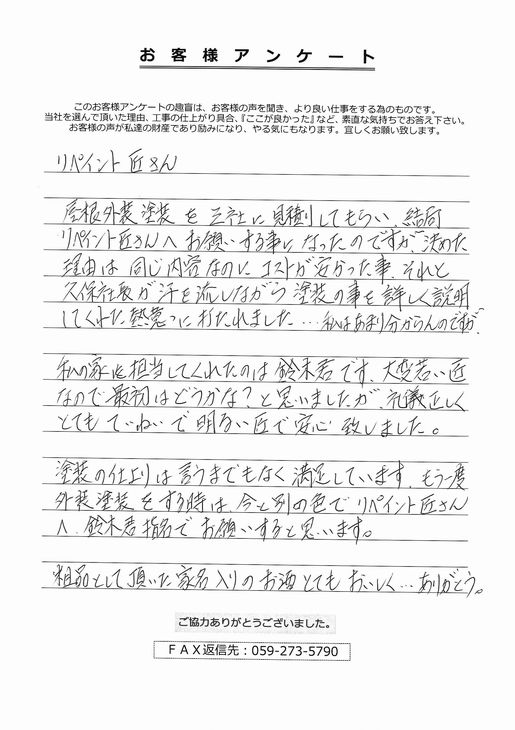 お客様アンケート
このお客様アンケートの趣旨は、お客様の声を聞き、より良い仕事をする為のものです。
当社を選んで頂いた理由、工事の仕上がり具合、『ここが良かった』など、素直な気持ちでお答え下さい。
お客様の声が私達の財産であり励みになり、やる気にもなります。宜しくお願い致します。
リペイント匠さん
屋根外装塗装を三社に見積りしてもらい、結局
リペイント匠さんへお願いする事になったのですが、決めた
理由は同じ内容なのにコストが安かった事、それと
久保社長が汗を流しながら塗装の事を詳しく説明
してくれた熱意に打たれました…私はあまり分からんのですが、
私の家を担当してくれたのは鈴木君です、大変若い匠
なので最初はどうかな?と思いましたが、礼儀正しく
とてもていねいで明るい匠で安心致しました。
塗装の仕上りは言うまでもなく満足しています、もう一度
外装塗装をする時は、今と別の色でリペイント匠さん
へ、鈴木君指名でお願いすると思います。
粗品として頂いた家名入りのお酒とてもおいしく…ありがとう。
ご協力ありがとうございました。
FAX返信先:059-273-5790